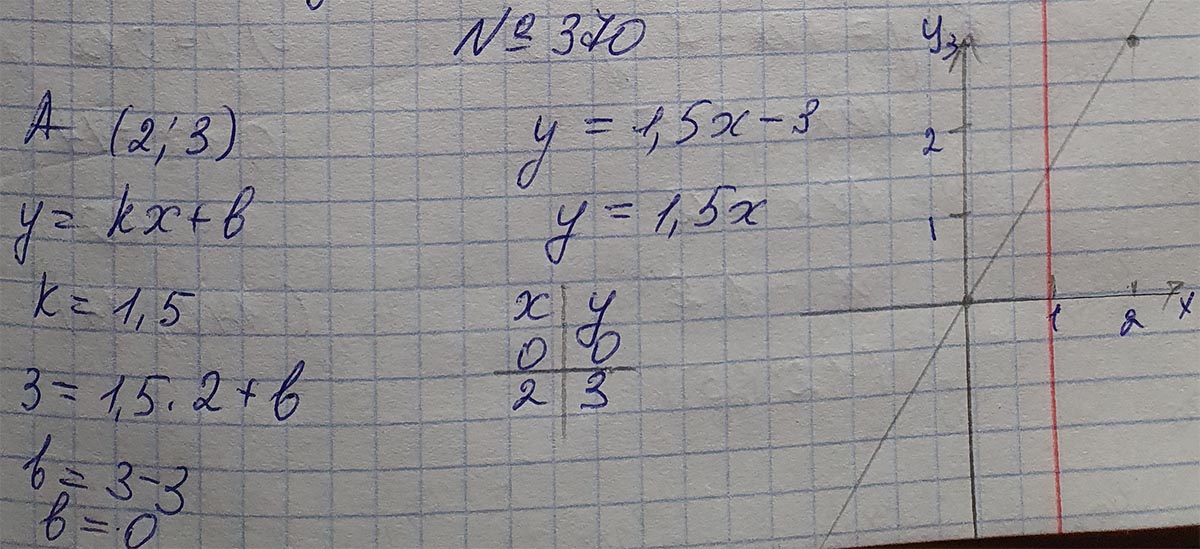 № 370
A (2; 3)
y = kx + b
k = 1,5
3 = 1,5 · 2 + b
b = 3 - 3
b = 0
y = 1,5x - 3
y = 1,5x
x y
0 0
2 3
y
3
2
1
1 2 x